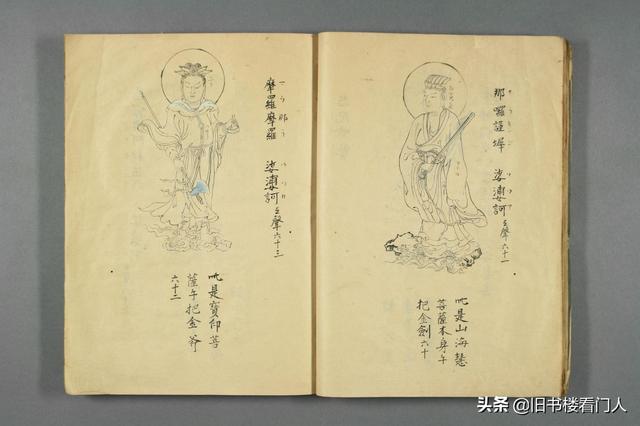 那囉謹墀 娑婆訶 去聲六十一
此是山海慧
菩薩本身手
把金劍六十
摩羅摩羅 娑婆訶 去聲六十三
那
此是寶印菩
薩手把金斧
六十二
头条 @旧书楼看门人